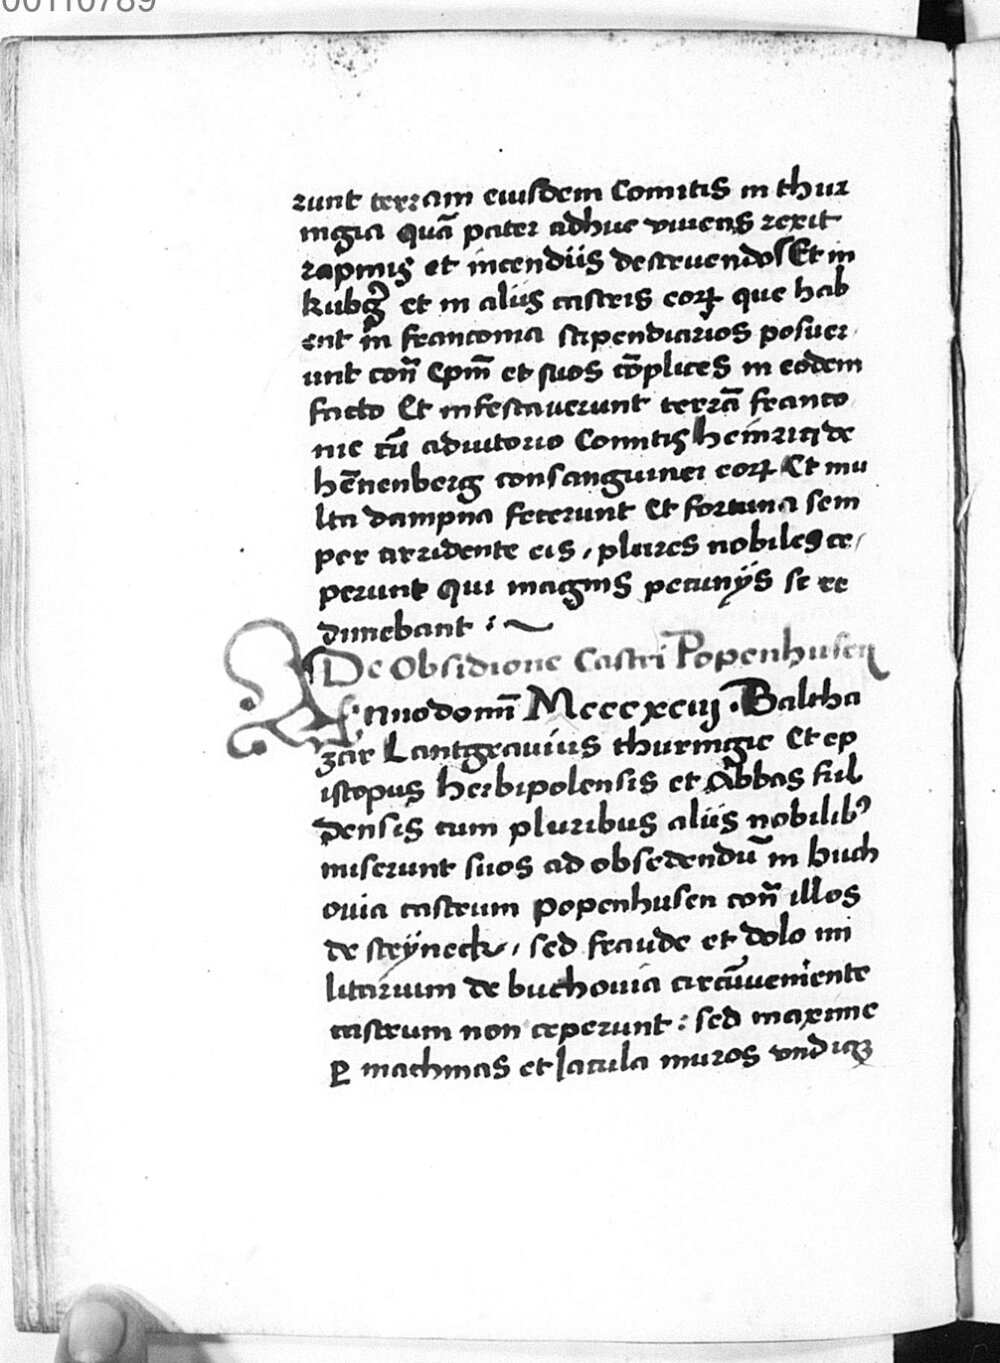 00110789
runt terram eiusdem Comitis in thur
ingia quā pater adhuc viuens rexit
rapinis et incendiis destruendo Et in
kubg̃ et in aliis castris eorꝝ que hab
ent in franconia stipendiarios posuer
unt con̄ Ep̄m et suos cōplices in eodem
facto Et infestauerunt terrā franco
nie cū adiutorio Comitis heinrici de
hēnenberg consanguinei eorꝝ Et mu
lta dampna fecerunt Et fortuna sem
per arridente eis, plures nobiles ce
perunt qui magnis pecunÿs se re
dimebant
De Obsidione Castri Popenhusen
Anno domī Mccccxciij Baltha
zar Lantgrauius thuringie Et ep
iscopus herbipolensis et Abbas ful
densis cum pluribus aliis nobilibꝰ
miserunt suos ad obsedendū in buch
ouia castrum popenhusen con̄ illos
de steÿneck, sed fraude et dolo mi
litarium de buchouia circūueniente
castrum non ceperunt : sed maxime
ꝑ machinas et Iacula muros vndiqꝫ